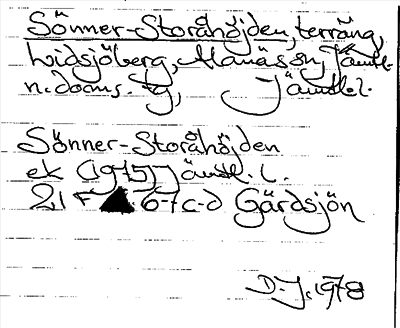 Sönner-Storåhöjden, terräng,
Lidsjöberg, Alanäs sn, Jämtl.
n. doms. tg, Jämtl. l.
Sönner-Storåhöjden
ek (1975) Jämtl. l.
21 F 6-7 c-d Gärdsjön
D. J. 1978